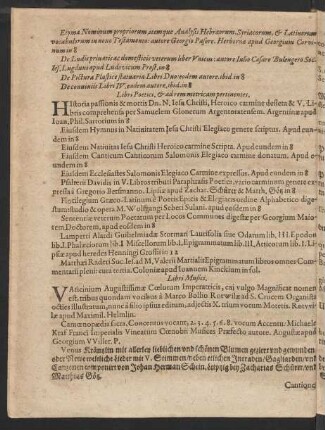 Etyma Nominum propriorum itemque Analysis Hebraeorum, Syriacorum, & Latinorum
vocabulorum in novo Testamento: autore Georgio Pasore. Herbornae apud Georgium Corvi-
num in 8
De Ludis privatis ac domesticis veterum liber Vnicus: autore Julio Caesare Bulengero Soc.
Jes. Lugduni apud Ludovicum Prost, in 8
De Pictura Plastice statuaria Libri Duo eodem autore. ibid. in 8
De conviviis Libri IV. eodem autore, ibid. in 8
Libri Poetici, & ad rem metricam pertinentes.
Historia passionis & mortis Dn. N. Iesu Christi, Heroico carmine descripta & V. Li-
bris comprehensa per Samuelem Glonerum Argentoratensem. Argentinae apud
Ioan. Phil. Sartorium in 8
Eiusdem Hymnus in Natiuitatem Iesu Christi Elegiaco genere scriptus. Apud eun-
dem in 8
Eiusdem Natiuitas Iesu Christi Heroico carmine Scripta. Apud eundem in 8
Eiusdem Canticum Canticorum Salomonis Elegiaco carmine donatum. Apud eun-
dem in 8
Eiusdem Ecclesiastes Salomonis Elegiaco Carmine expressus. Apud eundem in 8
Psalterii Davidis in V. Libros tributi Paraphrasis Poetica vario carminum genere ex-
pressa: Gregorio Bersmanno. Lipsiae apud Zachar. Schürer & Matth. Göz in 8
Florilegium Graeco-Latinum è Poetis Epicis & Elegiarionibus Alphabetico dige-
stum studio & opera M. Wolffgangi Seberi Sulani. apud eosdem in 8
Sententiae veterum Poetarum per Locos Communes digestae per Georgium Maio-
rem Doctorem, apud eosdem in 8
Lampertii Alardi Guilhelmiada Stormari Laurifolia sive Odarum lib. III. Epodon
lib. I. Phaleuciorum lib. I. Miscellorum lib. I. Epigrammatum lib. III, Articorum lib. I. Li-
psiae apud heredes Henningi Grossii in 12
Matthaei Raderi Soc. Ies. ad M. Valerii Martialis Epigrammatum libros omnes Com-
mentarii pleni: cura tertia. Coloniae apud Ioannem Kinchium in fol.
Libri Musici.
Vaticinium Augustissimae Coelorum Imperatricis, cui vulgo Magnificat nomen
est, tribus quondam vocibus à Marco Ballio Rotwilae ad S. Crucem Organista
octies illustratum, nunc ab eodem auctum, adiectis X. trium vocum Motetis. Rotwi-
lae apud Maximil. Helmlin.
Camoenopaedia sacra, Concentus vocum, 2. 3. 4. 5. 6. 8. vocum Accentu: Michaele
Krafft Fuxio Imperialis Vineatini Coenobii Musices Praefecto autore. Augustae apud
Georgium VViller. P.
Venus Kräntzlin mit allerley lieblichen und schönen Blumen geziert und gewunden
oder Newe weltliche Lieder mit V. Stimmen/neben etlichen Intraden/Gagliarden/und
Canzonen componiert von Johan Herman Schein, Leipzig bey Zacharias Schürer/und
Matthias Götz.
Cantiones